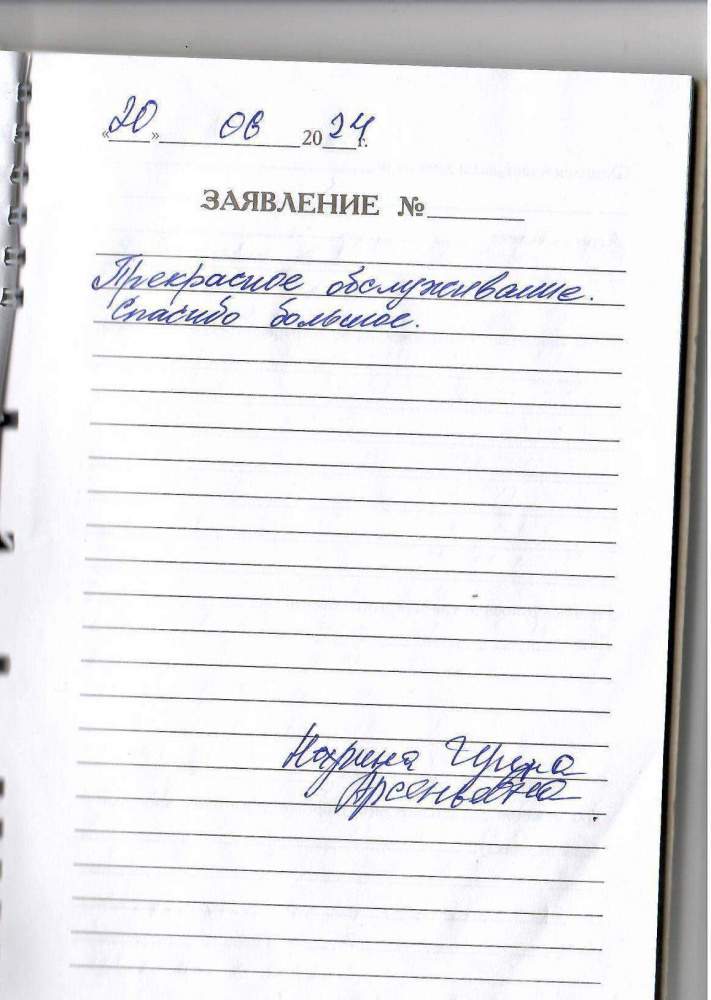 «20» 06 2024г.
ЗАЯВЛЕНИЕ №
Прекрасное обслуживание.
Спасибо большое.
Ирина
Арсеньевна